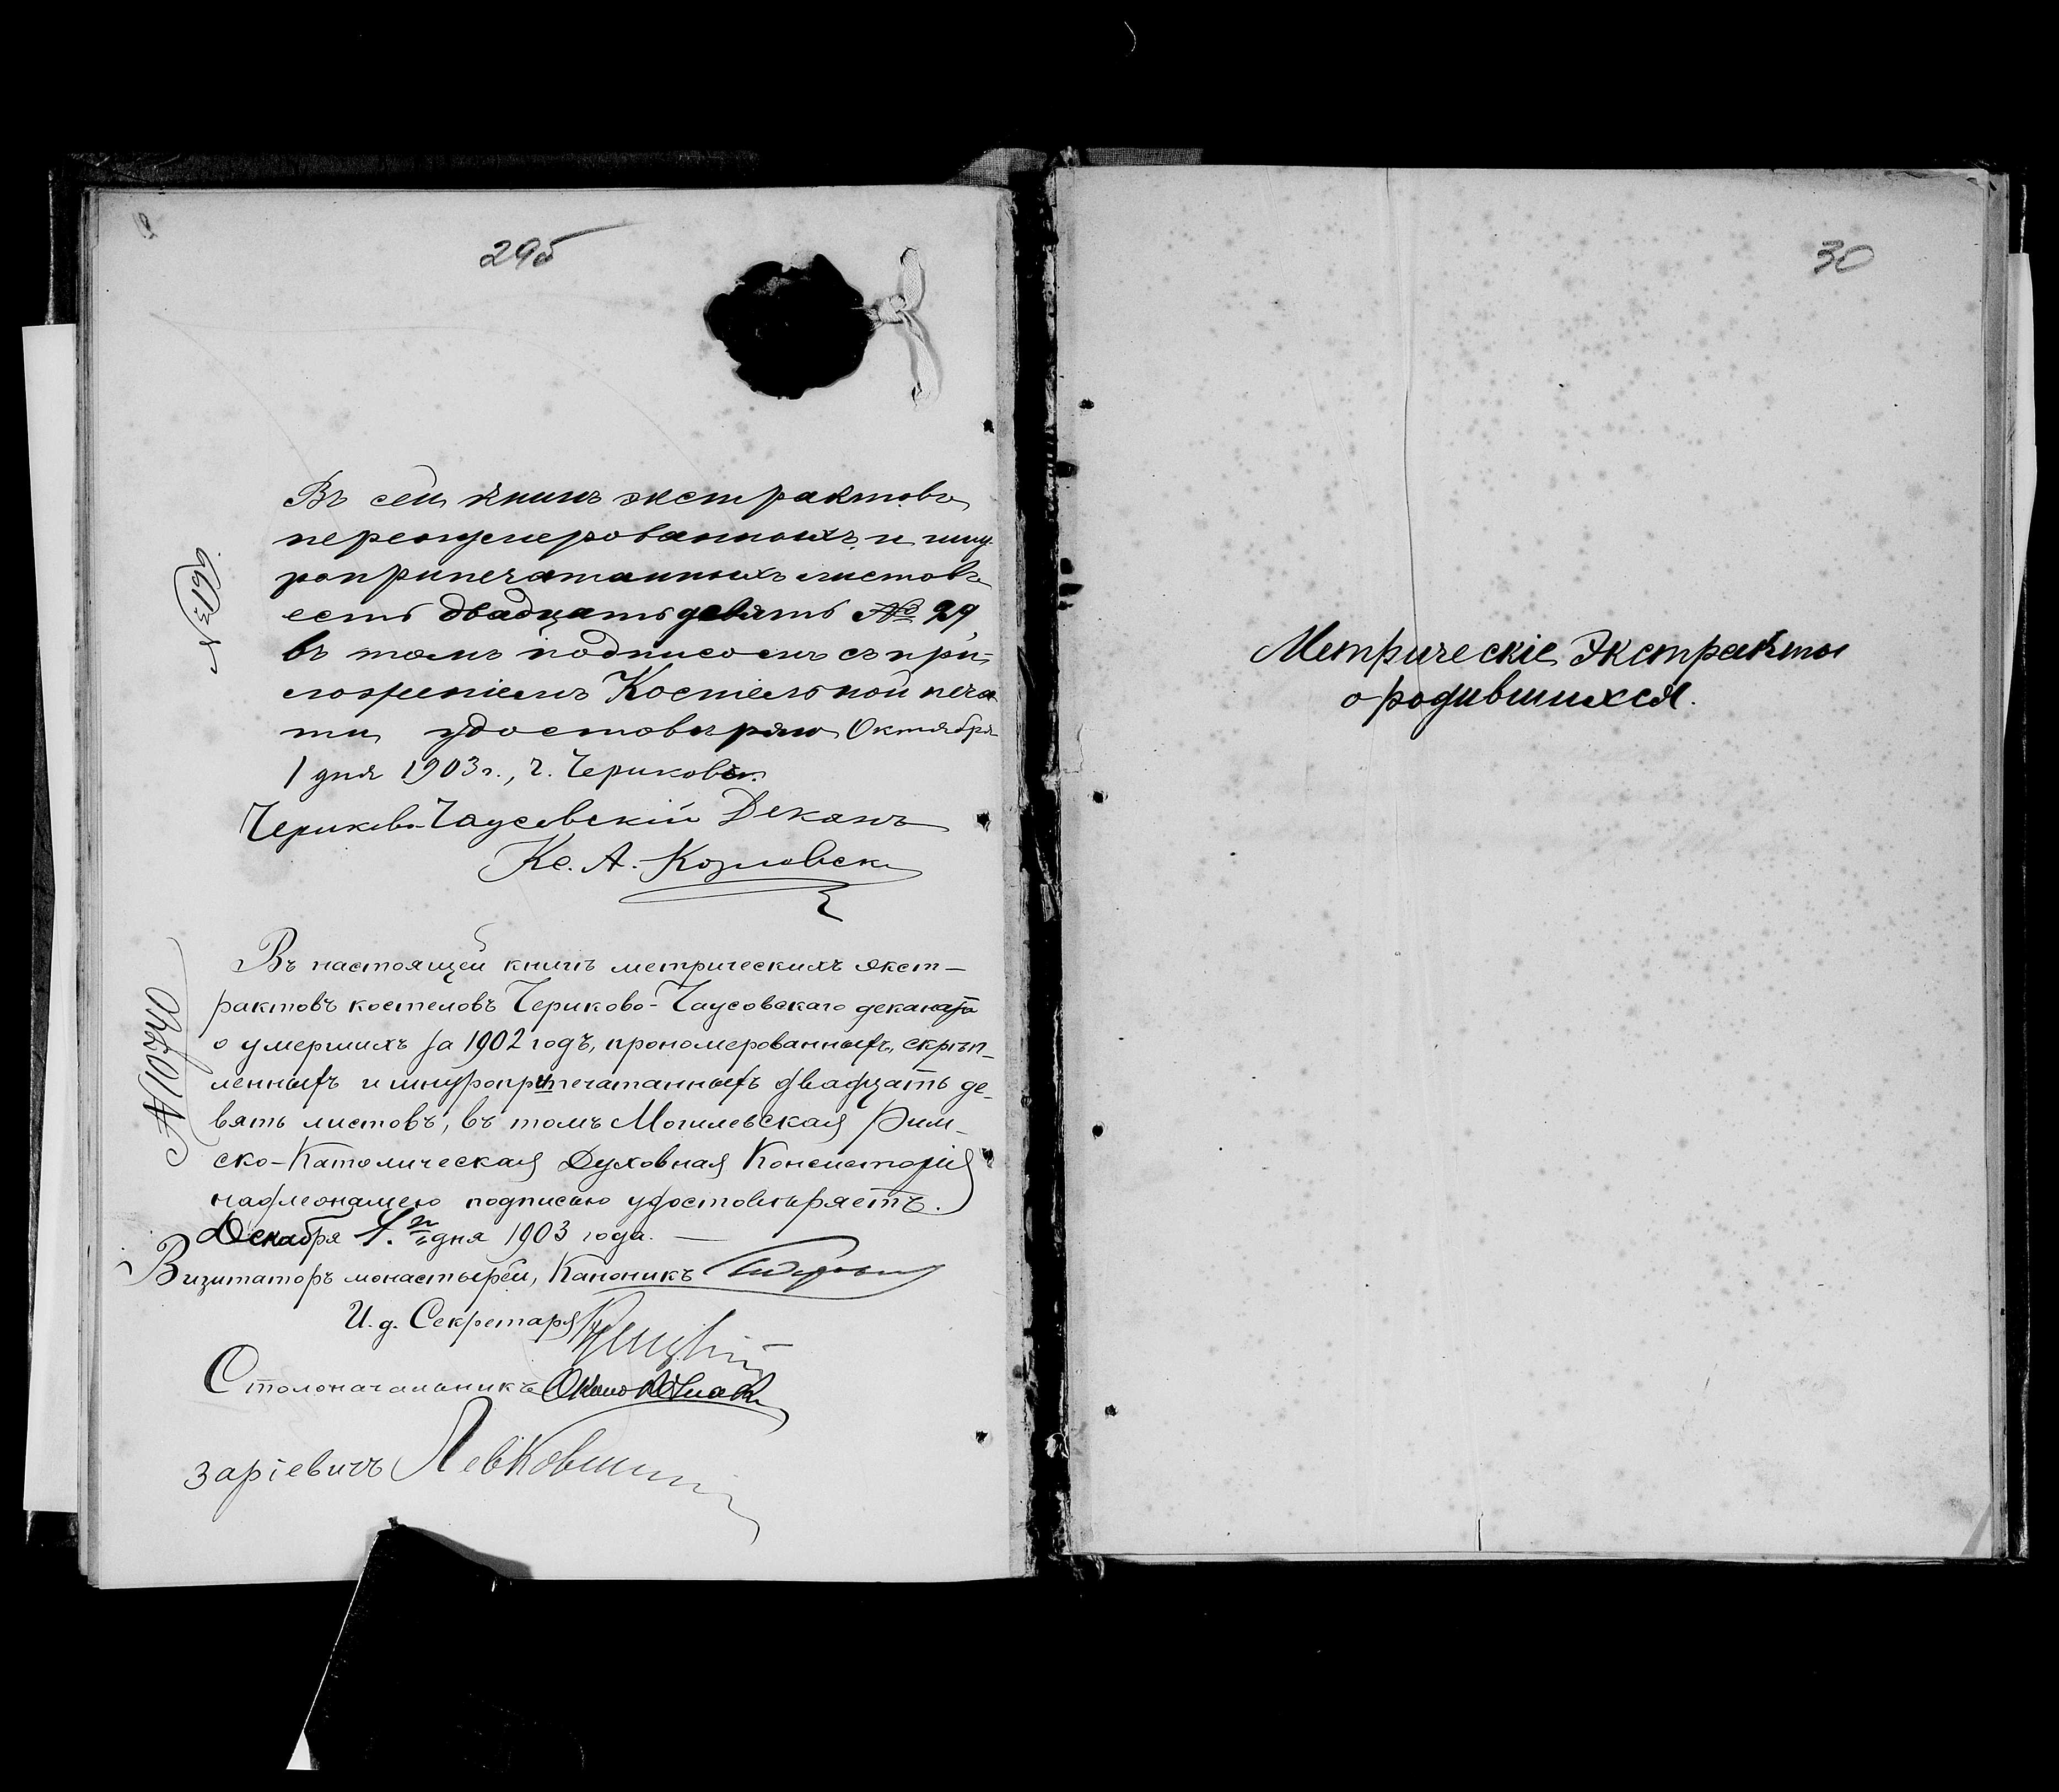 29б
№ 196.
Въ сей книгѣ экстрактовъ
перенумерованныхъ и шну-
роприпечатанныхъ листовъ
есть двадцать девять № 29
въ томъ подписомъ съ при-
ложеніемъ Костельной печа
ти удостовѣряю Октября
1 дня 1903 г., г. Чериковъ.
Чериково-Чаусовскій Деканъ
Кс. А. Козловск
№ 10740
Въ настоящей книгѣ метрическихъ экст-
рактовъ костеловъ Чериково-Чаусовскаго деканата
о умершихъ за 1902 годъ, прономерованныхъ, скрѣп-
ленныхъ и шнуроприпечатанныхъ двадцать де-
вять листовъ, въ томъ Могилевская Рим-
ско-Католическая Духовная Консисторія
надлежащею подписью удостовѣряетъ.
Декабря 1. дня 1903 года. —
Визитаторъ монастырей, Каноникъ
И. д. Секретаря
Столоначальникъ
заріевичъ
30
Метрическіе Экстракты
о родившихся.